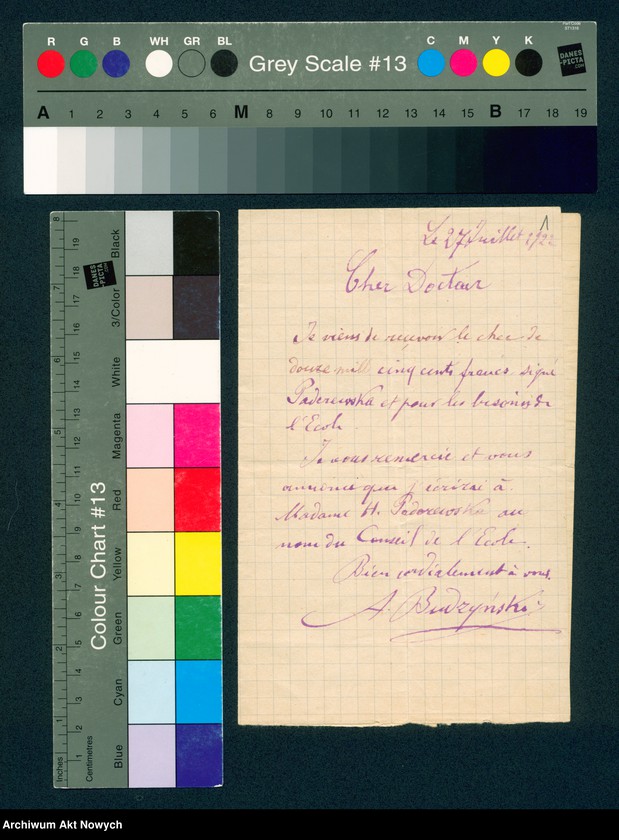 Part Code
ST1316
R G B WH GR BL Grey Scale #13 C M Y K
DANES
-PICTA
.COM
A 1 2 3 4 5 6 M 8 9 10 11 12 13 14 15 B 17 18 19
Colour Chart #13
Blue Cyan Green Yellow Red Magenta White 3/Color Black
DANES
-PICTA
.COM
Inches 1 2 3 4 5 6 7 8
Centimetres 1 2 3 4 5 6 7 8 9 10 11 12 13 14 15 16 17 18 19
1
Le 27 Juillet 1922
Cher Docteur
Je viens de recevoir le chec de
douze mill cinq cents francs signé
Paderewska et pour les besoins de
l'Ecole
Je vous remercie et vous
annonce que j'écrirai à
Madame H. Paderewska au
nom du Conseil de l'Ecole.
Bien cordialement à vous.
A. Budzyński
Archiwum Akt Nowych